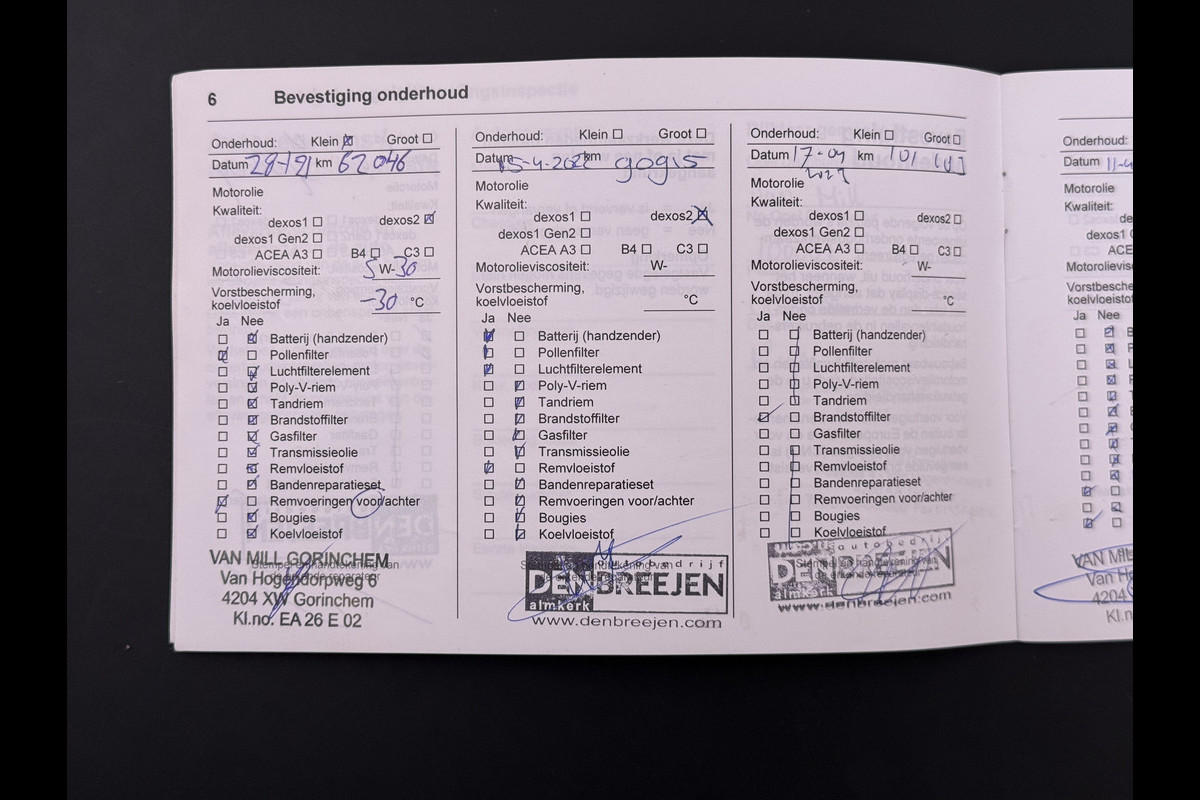 6 Bevestiging onderhoud
Onderhoud: Klein Groot
Datum km 62 046
Motorolie
Kwaliteit:
dexos1 dexos2
dexos1 Gen2
ACEA A3 B4 C3
Motorolieviscositeit: 5 W-30
Vorstbescherming,
koelvloeistof -30 °C
Ja Nee
Batterij (handzender)
Pollenfilter
Luchtfilterelement
Poly-V-riem
Tandriem
Brandstoffilter
Gasfilter
Transmissieolie
Remvloeistof
Bandenreparatieset
Remvoeringen voor/achter
Bougies
Koelvloeistof
VAN MILL GORINCHEM
Stempel en handtekening van
Van Hogendorpweg 6
4204 XW Gorinchem
Kl.no. EA 26 E 02
Onderhoud: Klein Groot
Datum km
Motorolie
Kwaliteit:
dexos1 dexos2
dexos1 Gen2
ACEA A3 B4 C3
Motorolieviscositeit: W-
Vorstbescherming,
koelvloeistof °C
Ja Nee
Batterij (handzender)
Pollenfilter
Luchtfilterelement
Poly-V-riem
Tandriem
Brandstoffilter
Gasfilter
Transmissieolie
Remvloeistof
Bandenreparatieset
Remvoeringen voor/achter
Bougies
Koelvloeistof
autobedrijf
DENBREEJEN
almkerk
www.denbreejen.com
Onderhoud: Klein Groot
Datum km
Motorolie
Kwaliteit:
dexos1 dexos2
dexos1 Gen2
ACEA A3 B4 C3
Motorolieviscositeit: W-
Vorstbescherming,
koelvloeistof °C
Ja Nee
Batterij (handzender)
Pollenfilter
Luchtfilterelement
Poly-V-riem
Tandriem
Brandstoffilter
Gasfilter
Transmissieolie
Remvloeistof
Bandenreparatieset
Remvoeringen voor/achter
Bougies
Koelvloeistof
autobedrijf
DENBREEJEN
almkerk
www.denbreejen.com
Onderhoud:
Datum
Motorolie
Kwaliteit:
Ja Nee